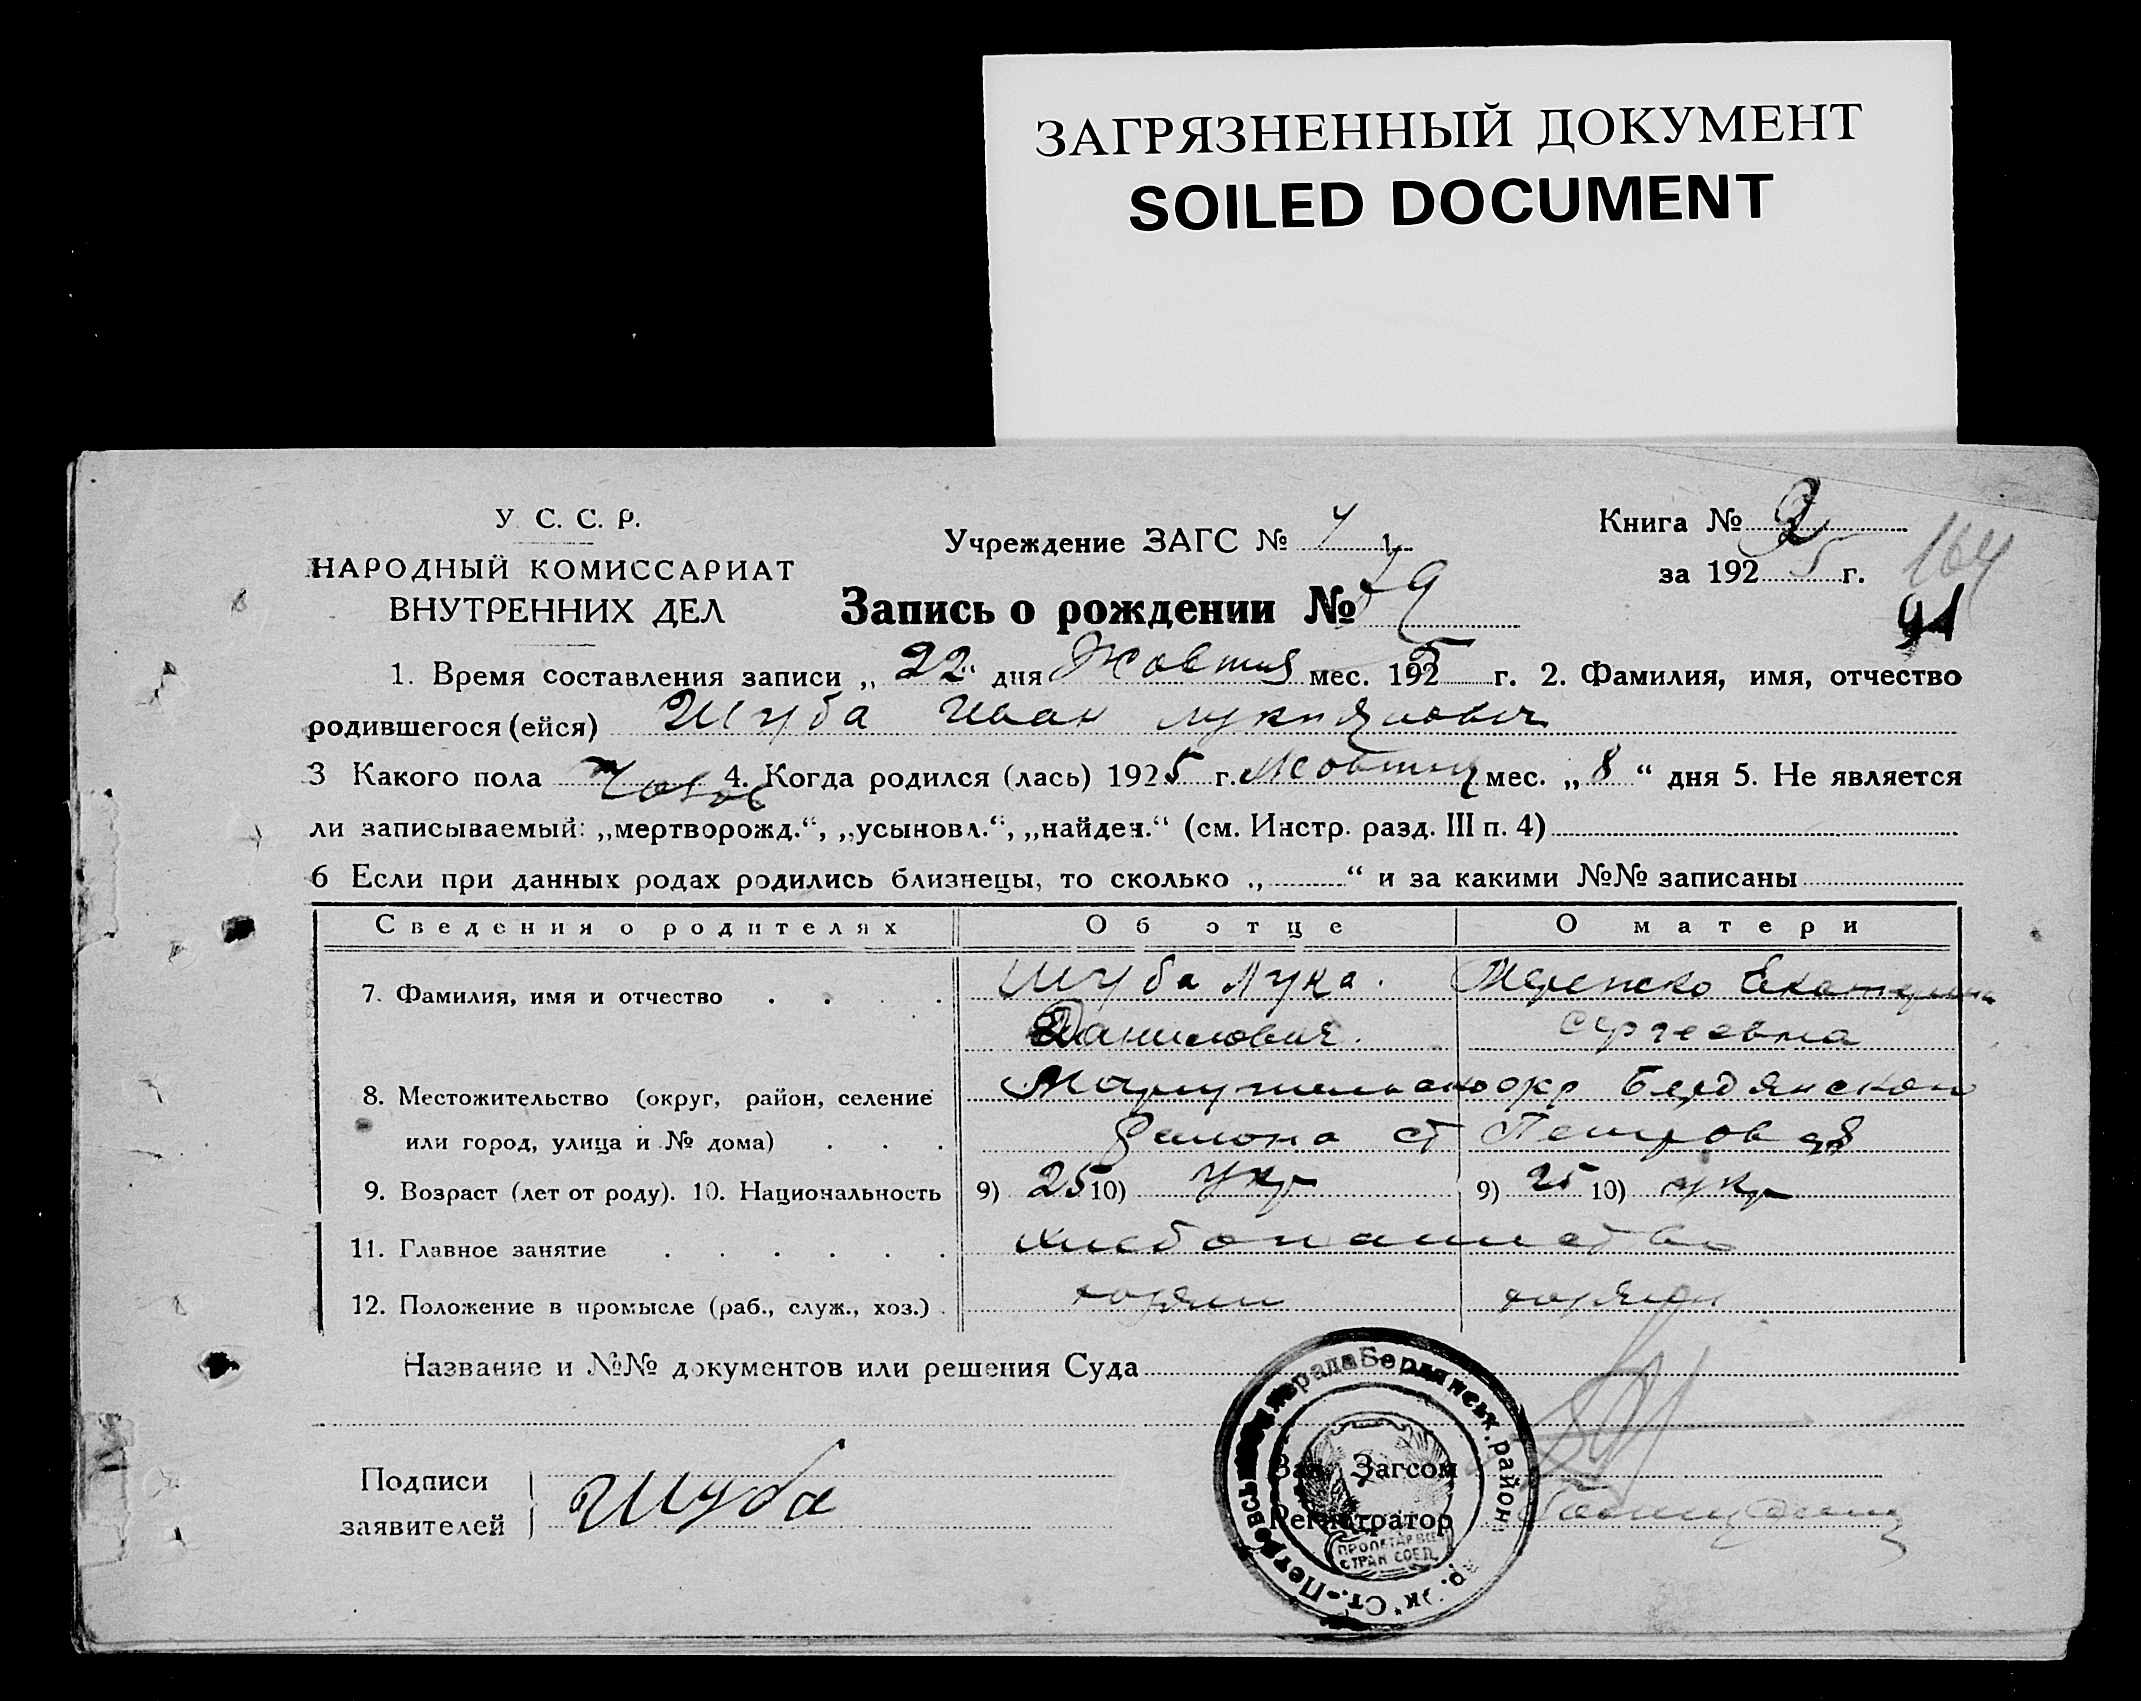 ЗАГРЯЗНЕННЫЙ ДОКУМЕНТ
SOILED DOCUMENT
У. С. С. Р.
НАРОДНЫЙ КОМИССАРИАТ
ВНУТРЕННИХ ДЕЛ
Учреждение ЗАГС №
Книга № 2
за 1925 г.
164
91
Запись о рождении № 79
1. Время составления записи „22“ дня Жовтня мес. 1925 г. 2. Фамилия, имя, отчество
родившегося (ейся) Шуба Иван Лукиянович
3 Какого пола 4. Когда родился (лась) 1925 г. Жовтня мес. „8“ дня 5. Не является
ли записываемый: „мертворожд.“, „усыновл.“, „найден.“ (см. Инстр. разд. III п. 4)
6 Если при данных родах родились близнецы, то сколько „ “ и за какими №№ записаны
Сведения о родителях Об отце О матери
7. Фамилия, имя и отчество Шуба Лука. Екатерина
Данилович. Сергеевна
8. Местожительство (округ, район, селение Мариупольско окр Бердянском
или город, улица и № дома) района ст Петровая
9. Возраст (лет от роду). 10. Национальность 9) 25 10) укр 9) 25 10) укр
11. Главное занятие хлебопашество
12. Положение в промысле (раб., служ., хоз.)
Название и №№ документов или решения Суда
Подписи
заявителей Шуба
Зав. Загсом
Регистратор
Ст.-Петровськ Бердянськ. район
ПРОЛЕТАР ВСЕХ
СТРАН СОЕД.